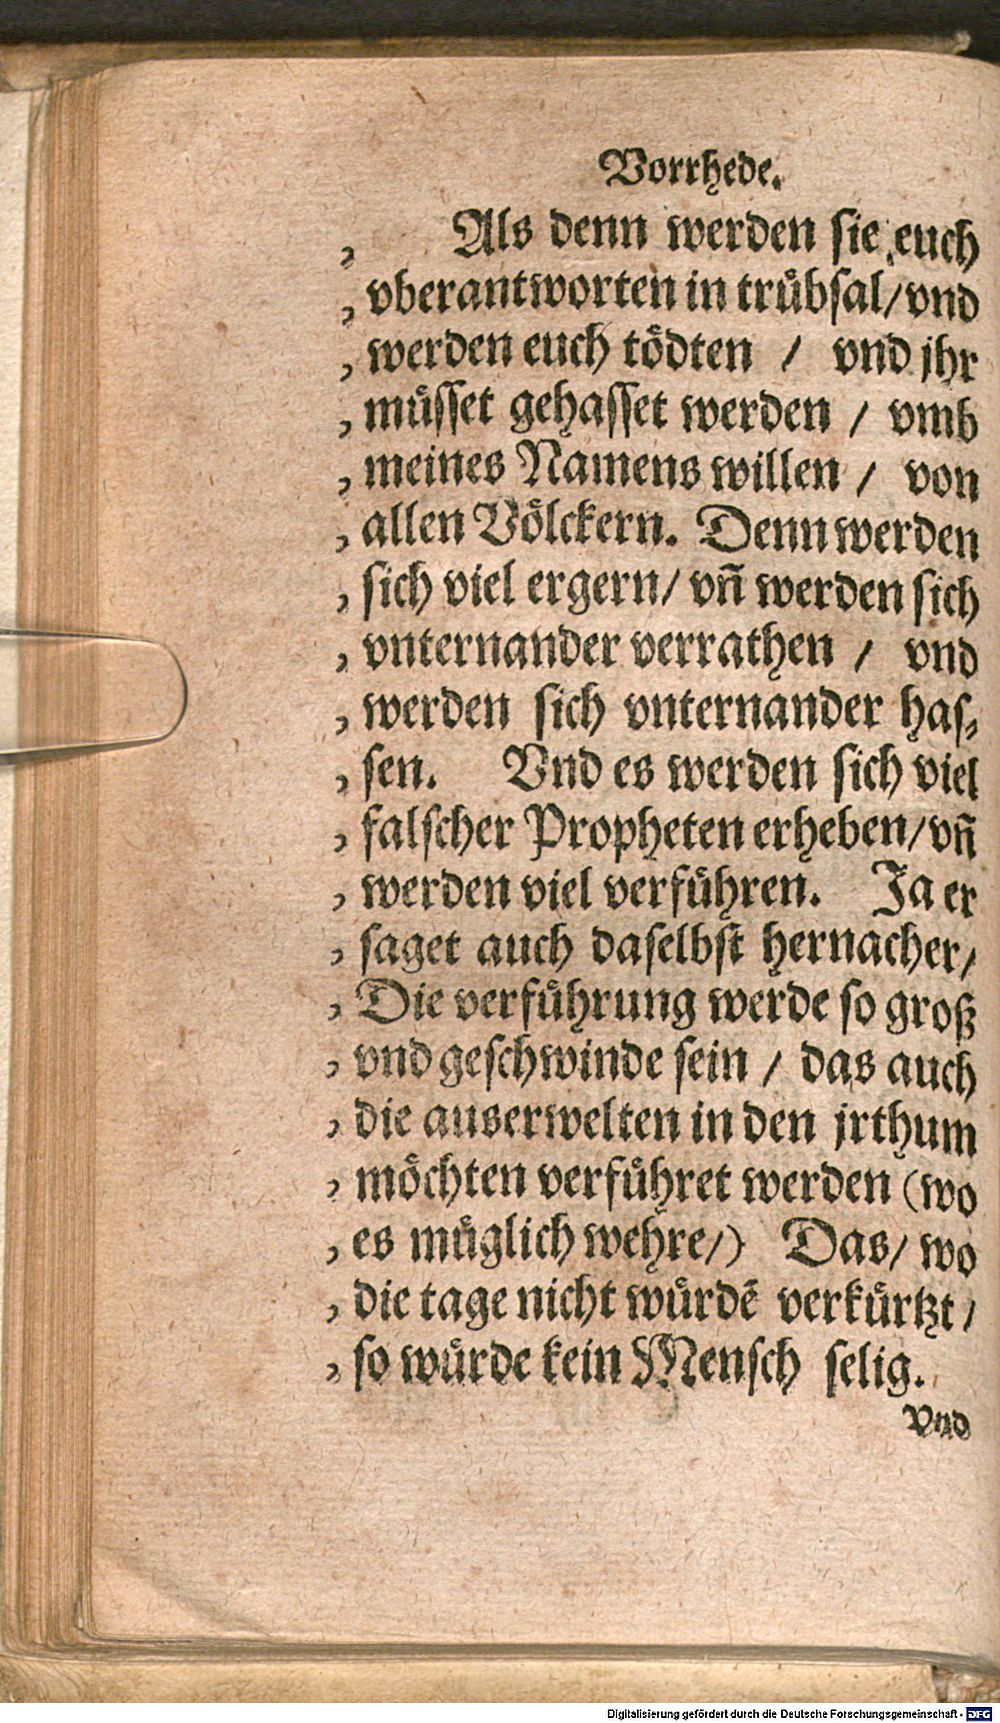 Vorrhede.
, Als denn werden sie euch
, vberantworten in trübsal/vnd
, werden euch tödten / vnd jhr
, müsset gehasset werden / vmb
, meines Namens willen / von
, allen Völckern. Denn werden
, sich viel ergern/ vñ werden sich
, vnternander verrathen / vnd
, werden sich vnternander has⸗
, sen. Vnd es werden sich viel
, falscher Propheten erheben/vñ
, werden viel verführen. Ja er
, saget auch daselbst hernacher/
, Die verführung werde so groß
, vnd geschwinde sein / das auch
, die auserwelten in den jrthum
, möchten verführet werden (wo
, es müglich wehre/) Das/ wo
, die tage nicht würdē verkürtzt /
, so würde kein Mensch selig.
Vnd
Digitalisierung gefördert durch die Deutsche Forschungsgemeinschaft - DFG